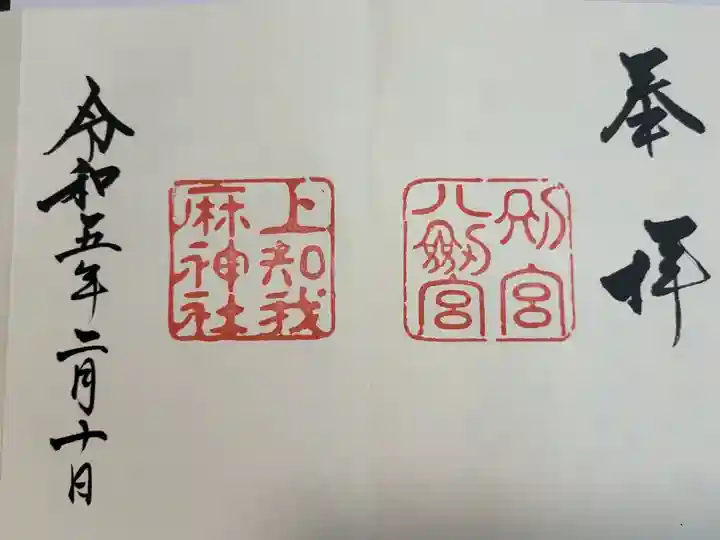 奉拝
別宮
八劔宮
上知我
麻神社
令和五年二月十日